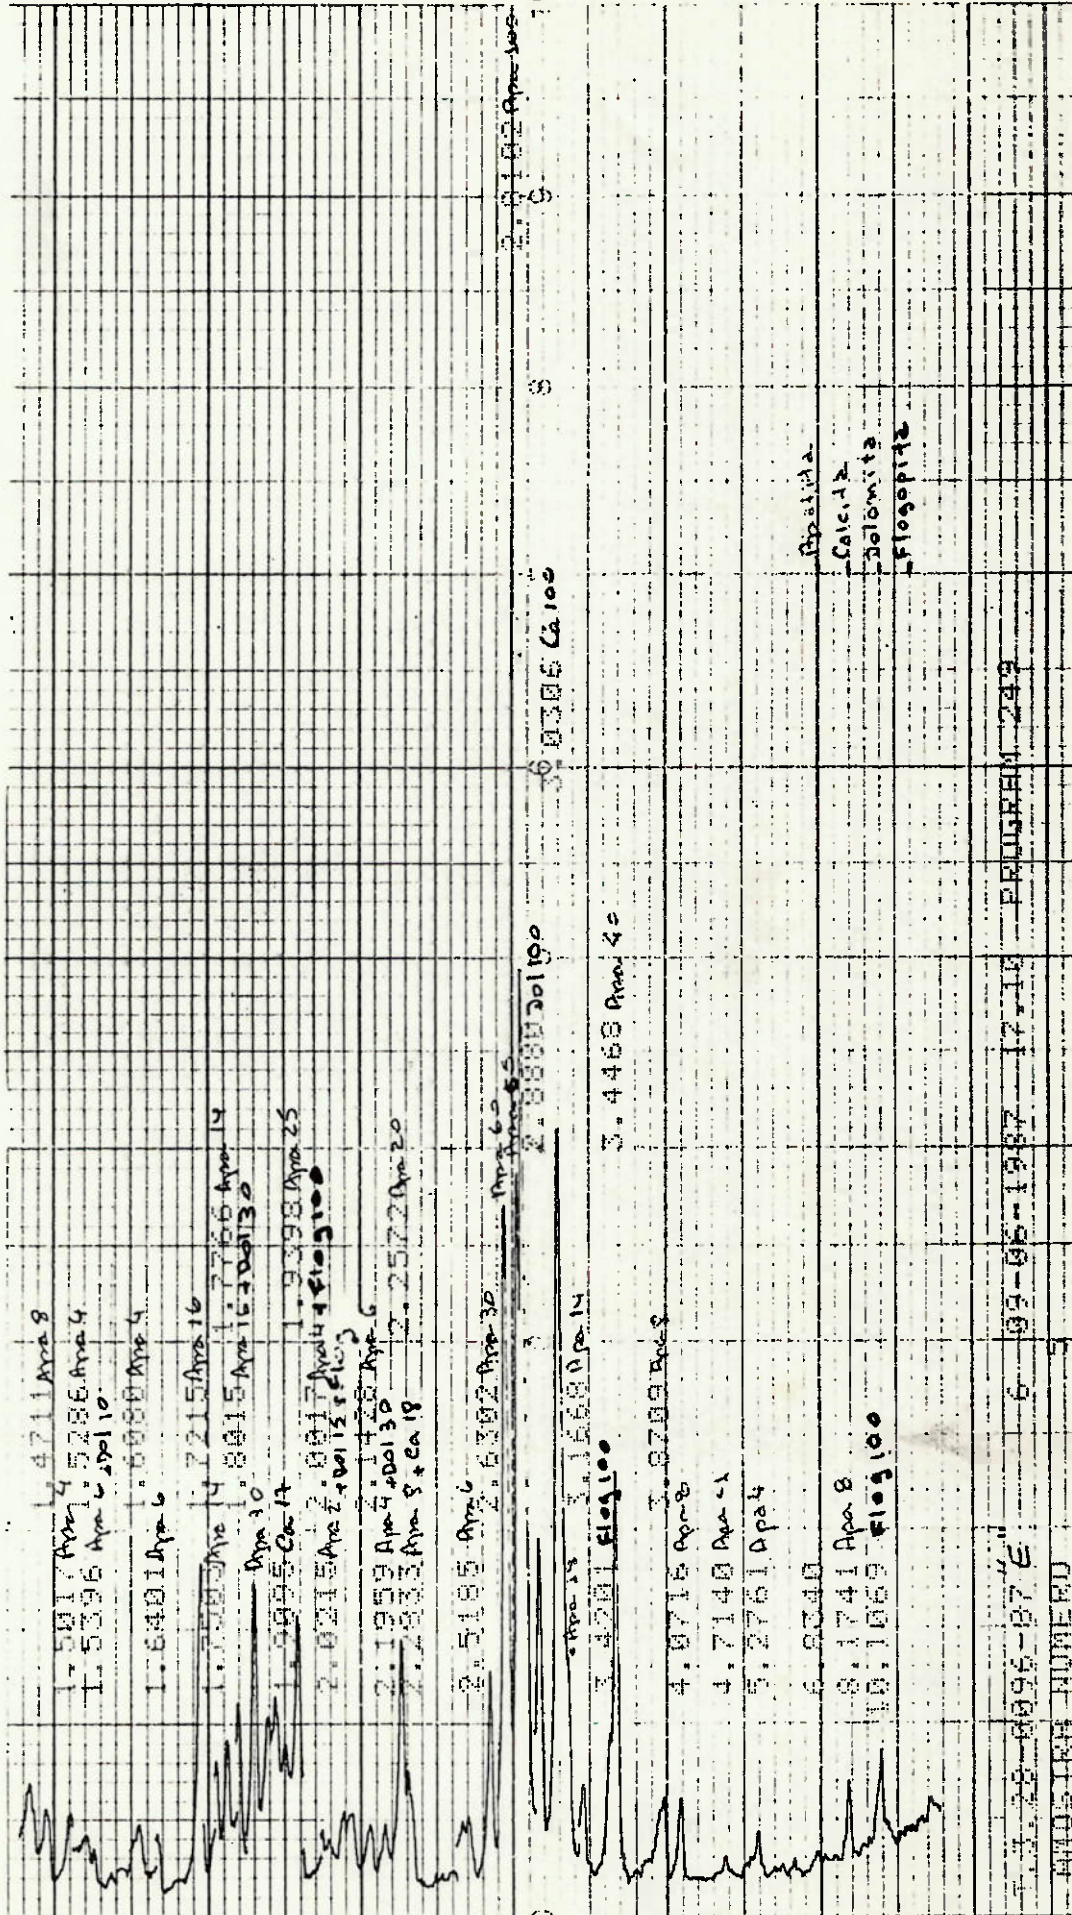 1.4711 Apa 8
1.5017 Apa 4
1.5286 Apa 4
1.5396 Apa 6 + Dol 10
Apa 4
1.6401 Apa 6
1.7215 Apa 16
Apa 14
1.7766 Apa 14
1.8015 Apa 16 + Dol 30
Apa 30
1.9398 Apa 25
Ca 17
2.0017 Apa 4 + Flog 100
2.0215 Apa 2 + Dol 15 + Flog
2.1428 Apa 6
2.1959 Apa 4 + Dol 30
2.2572 Apa 20
2.2933 Apa 8 + Ca 18
2.5185 Apa 6
2.6302 Apa 30
Apa 60
Apa 100
2.8880 Dol 100
3.0306 Ca 100
3.1668 Apa 14
3.4201 Flog 100
3.4468 Apa 40
3.8709 Apa 8
4.0716 Apa 8
4.7140 Apa <1
5.2761 Apa 4
6.8340
8.1741 Apa 8
10.1069 Flog 100
3
6
8
9
Apatita
Calcita
Dolomita
Flogopita
28-0096-87 "E" 6 09-06-1987 17.10 PROGRAM 249
AMOSTRA NUMERO 5